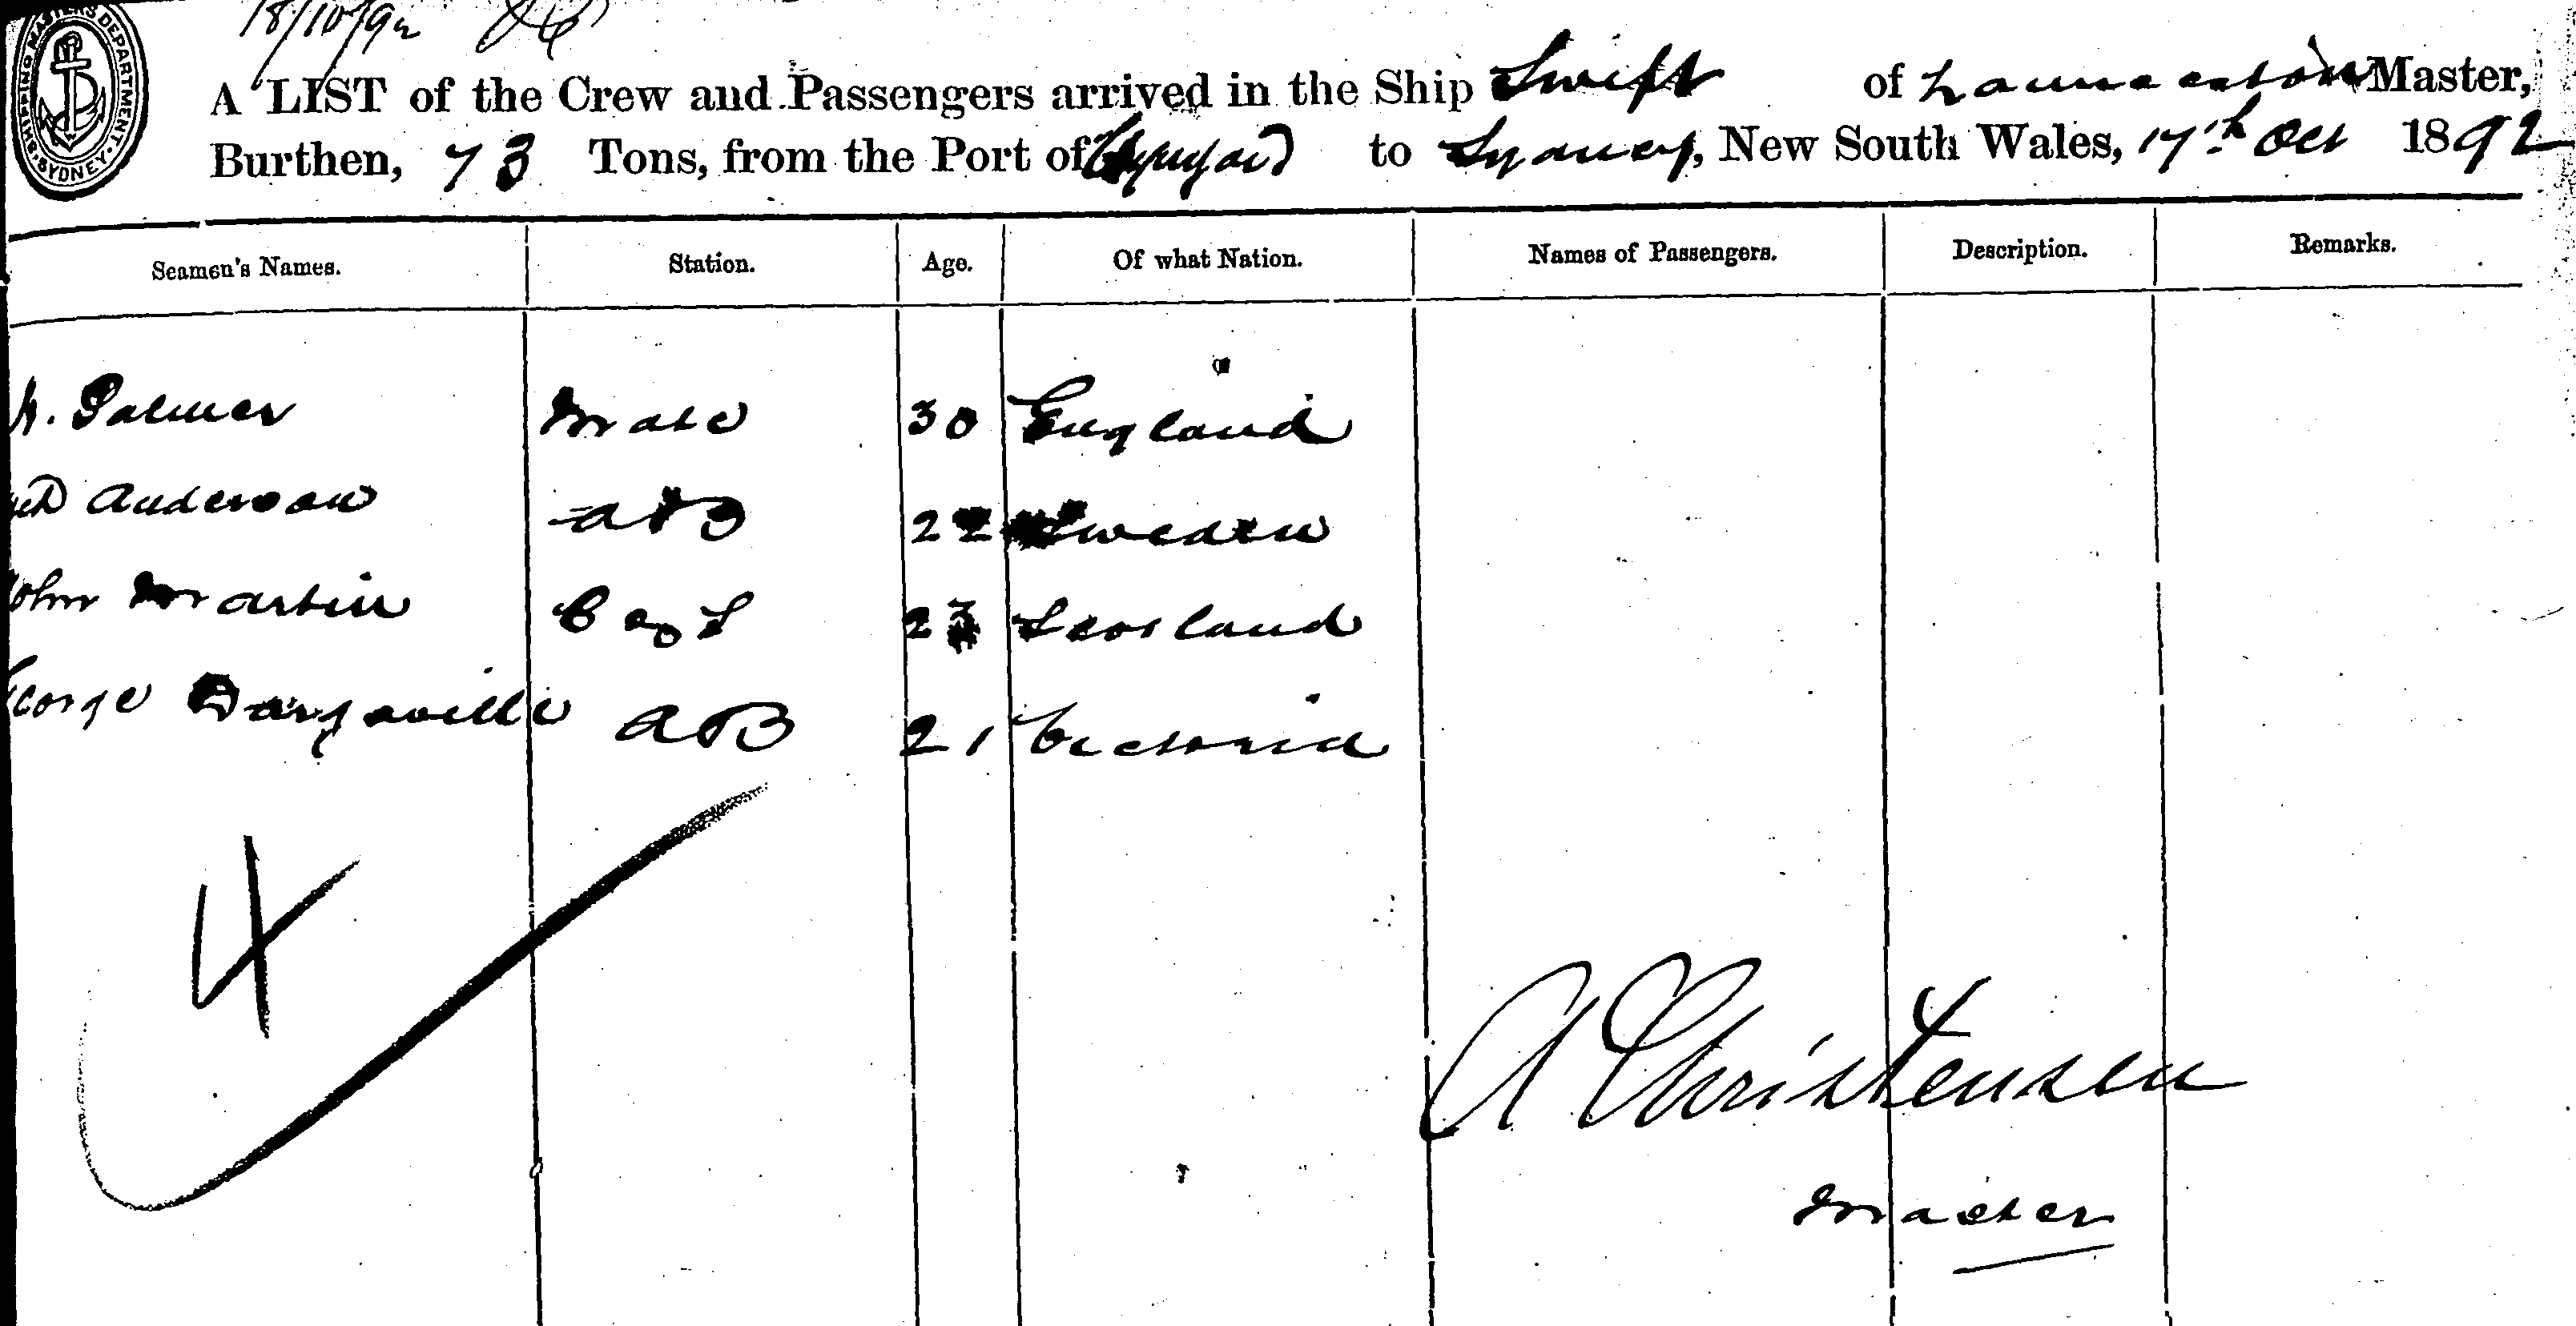 18/10/92
SHIPPING MASTERS DEPARTMENT · SYDNEY ·
A LIST of the Crew and Passengers arrived in the Ship Swift of Launceston Master,
Burthen, 73 Tons, from the Port of Wynyard to Sydney, New South Wales, 17th Oct 1892
Seamen's Names. Station. Age. Of what Nation. Names of Passengers. Description. Remarks.
Palmer Mate 30 England
Anderson AB 22 Sweden
John Martin 23 Scotland
George Dargaville AB 21 Victoria
4
A Christensen
Master